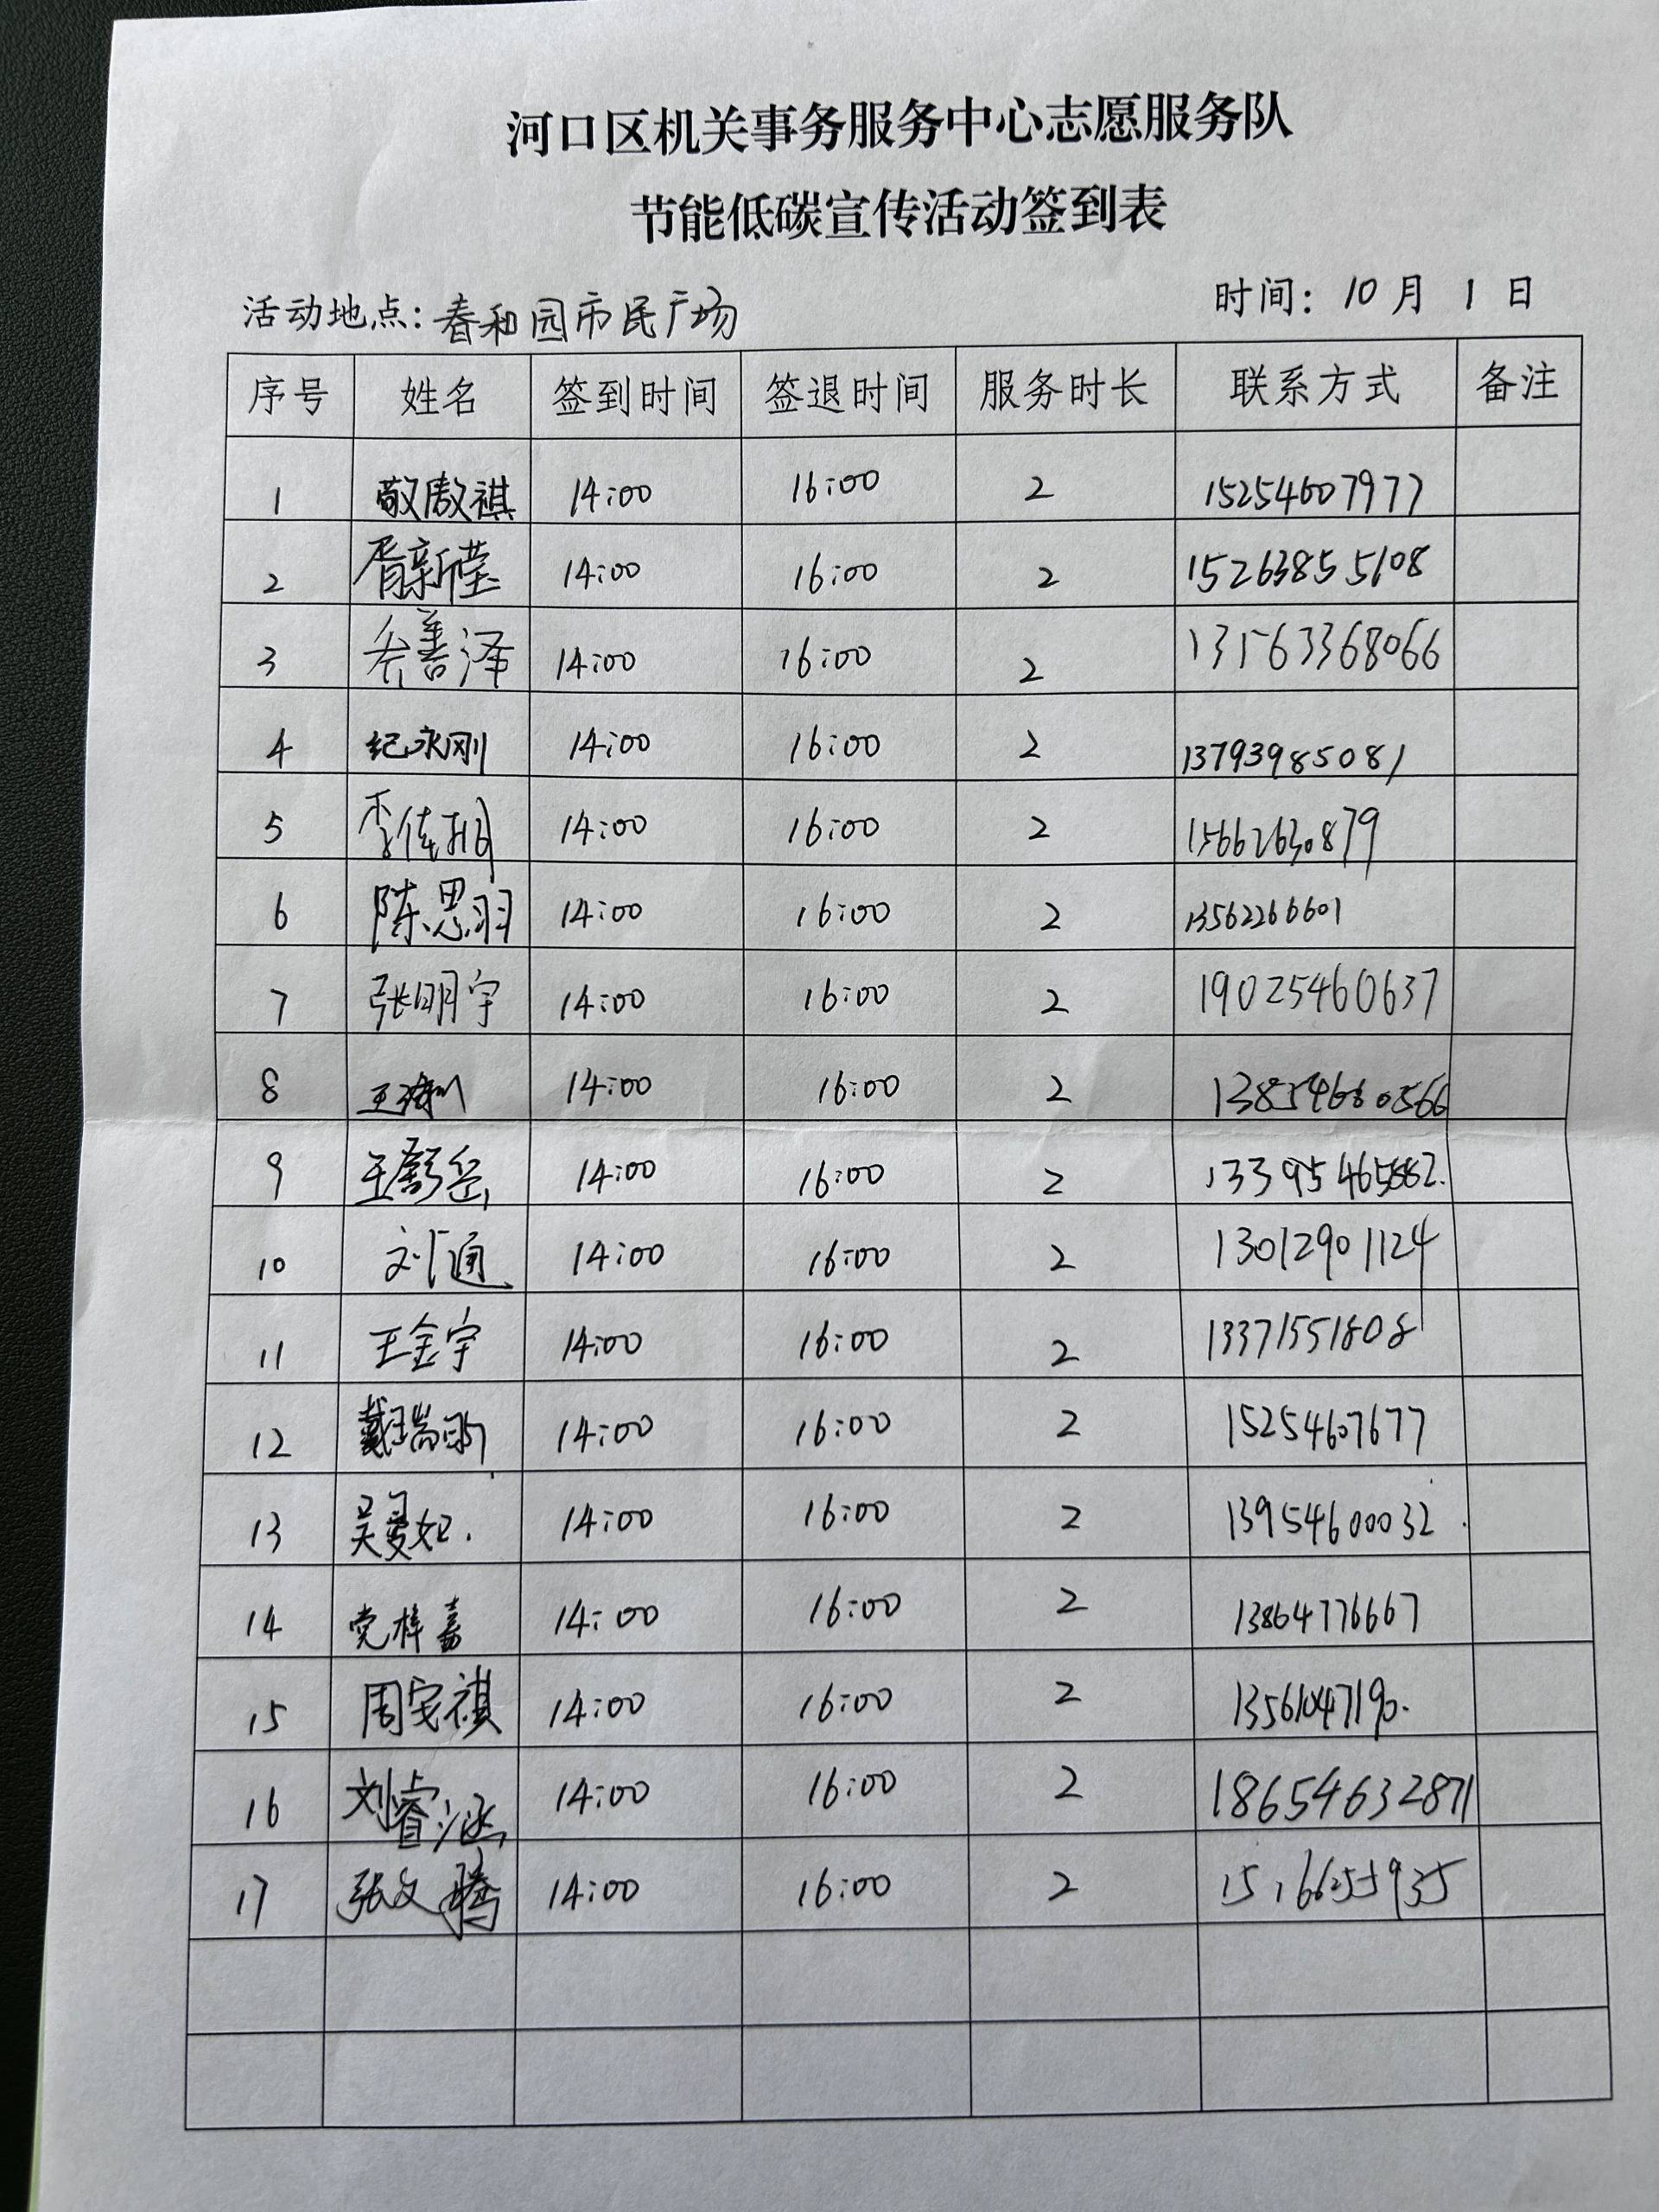 河口区机关事务服务中心志愿服务队
节能低碳宣传活动签到表
活动地点：春和园市民广场 时间：10月 1 日
序号 姓名 签到时间 签退时间 服务时长 联系方式 备注
1 敬傲祺 14:00 16:00 2 15254607977
2 胥新莹 14:00 16:00 2 15263855108
3 乔善泽 14:00 16:00 2 13563368066
4 纪永刚 14:00 16:00 2 13793985081
5 李佳 14:00 16:00 2 15662630879
6 陈思羽 14:00 16:00 2 13562266601
7 张明宇 14:00 16:00 2 19025460637
8 王 14:00 16:00 2
9 王 岳 14:00 16:00 2
10 刘通 14:00 16:00 2 13012901124
11 王金宇 14:00 16:00 2 13371551808
12 戴瑞 14:00 16:00 2 15254607677
13 吴曼妃. 14:00 16:00 2 13954600032
14 党梓嘉 14:00 16:00 2 13864776667
15 周宝祺 14:00 16:00 2 13561047190.
16 刘睿涵 14:00 16:00 2 18654632871
17 张文腾 14:00 16:00 2